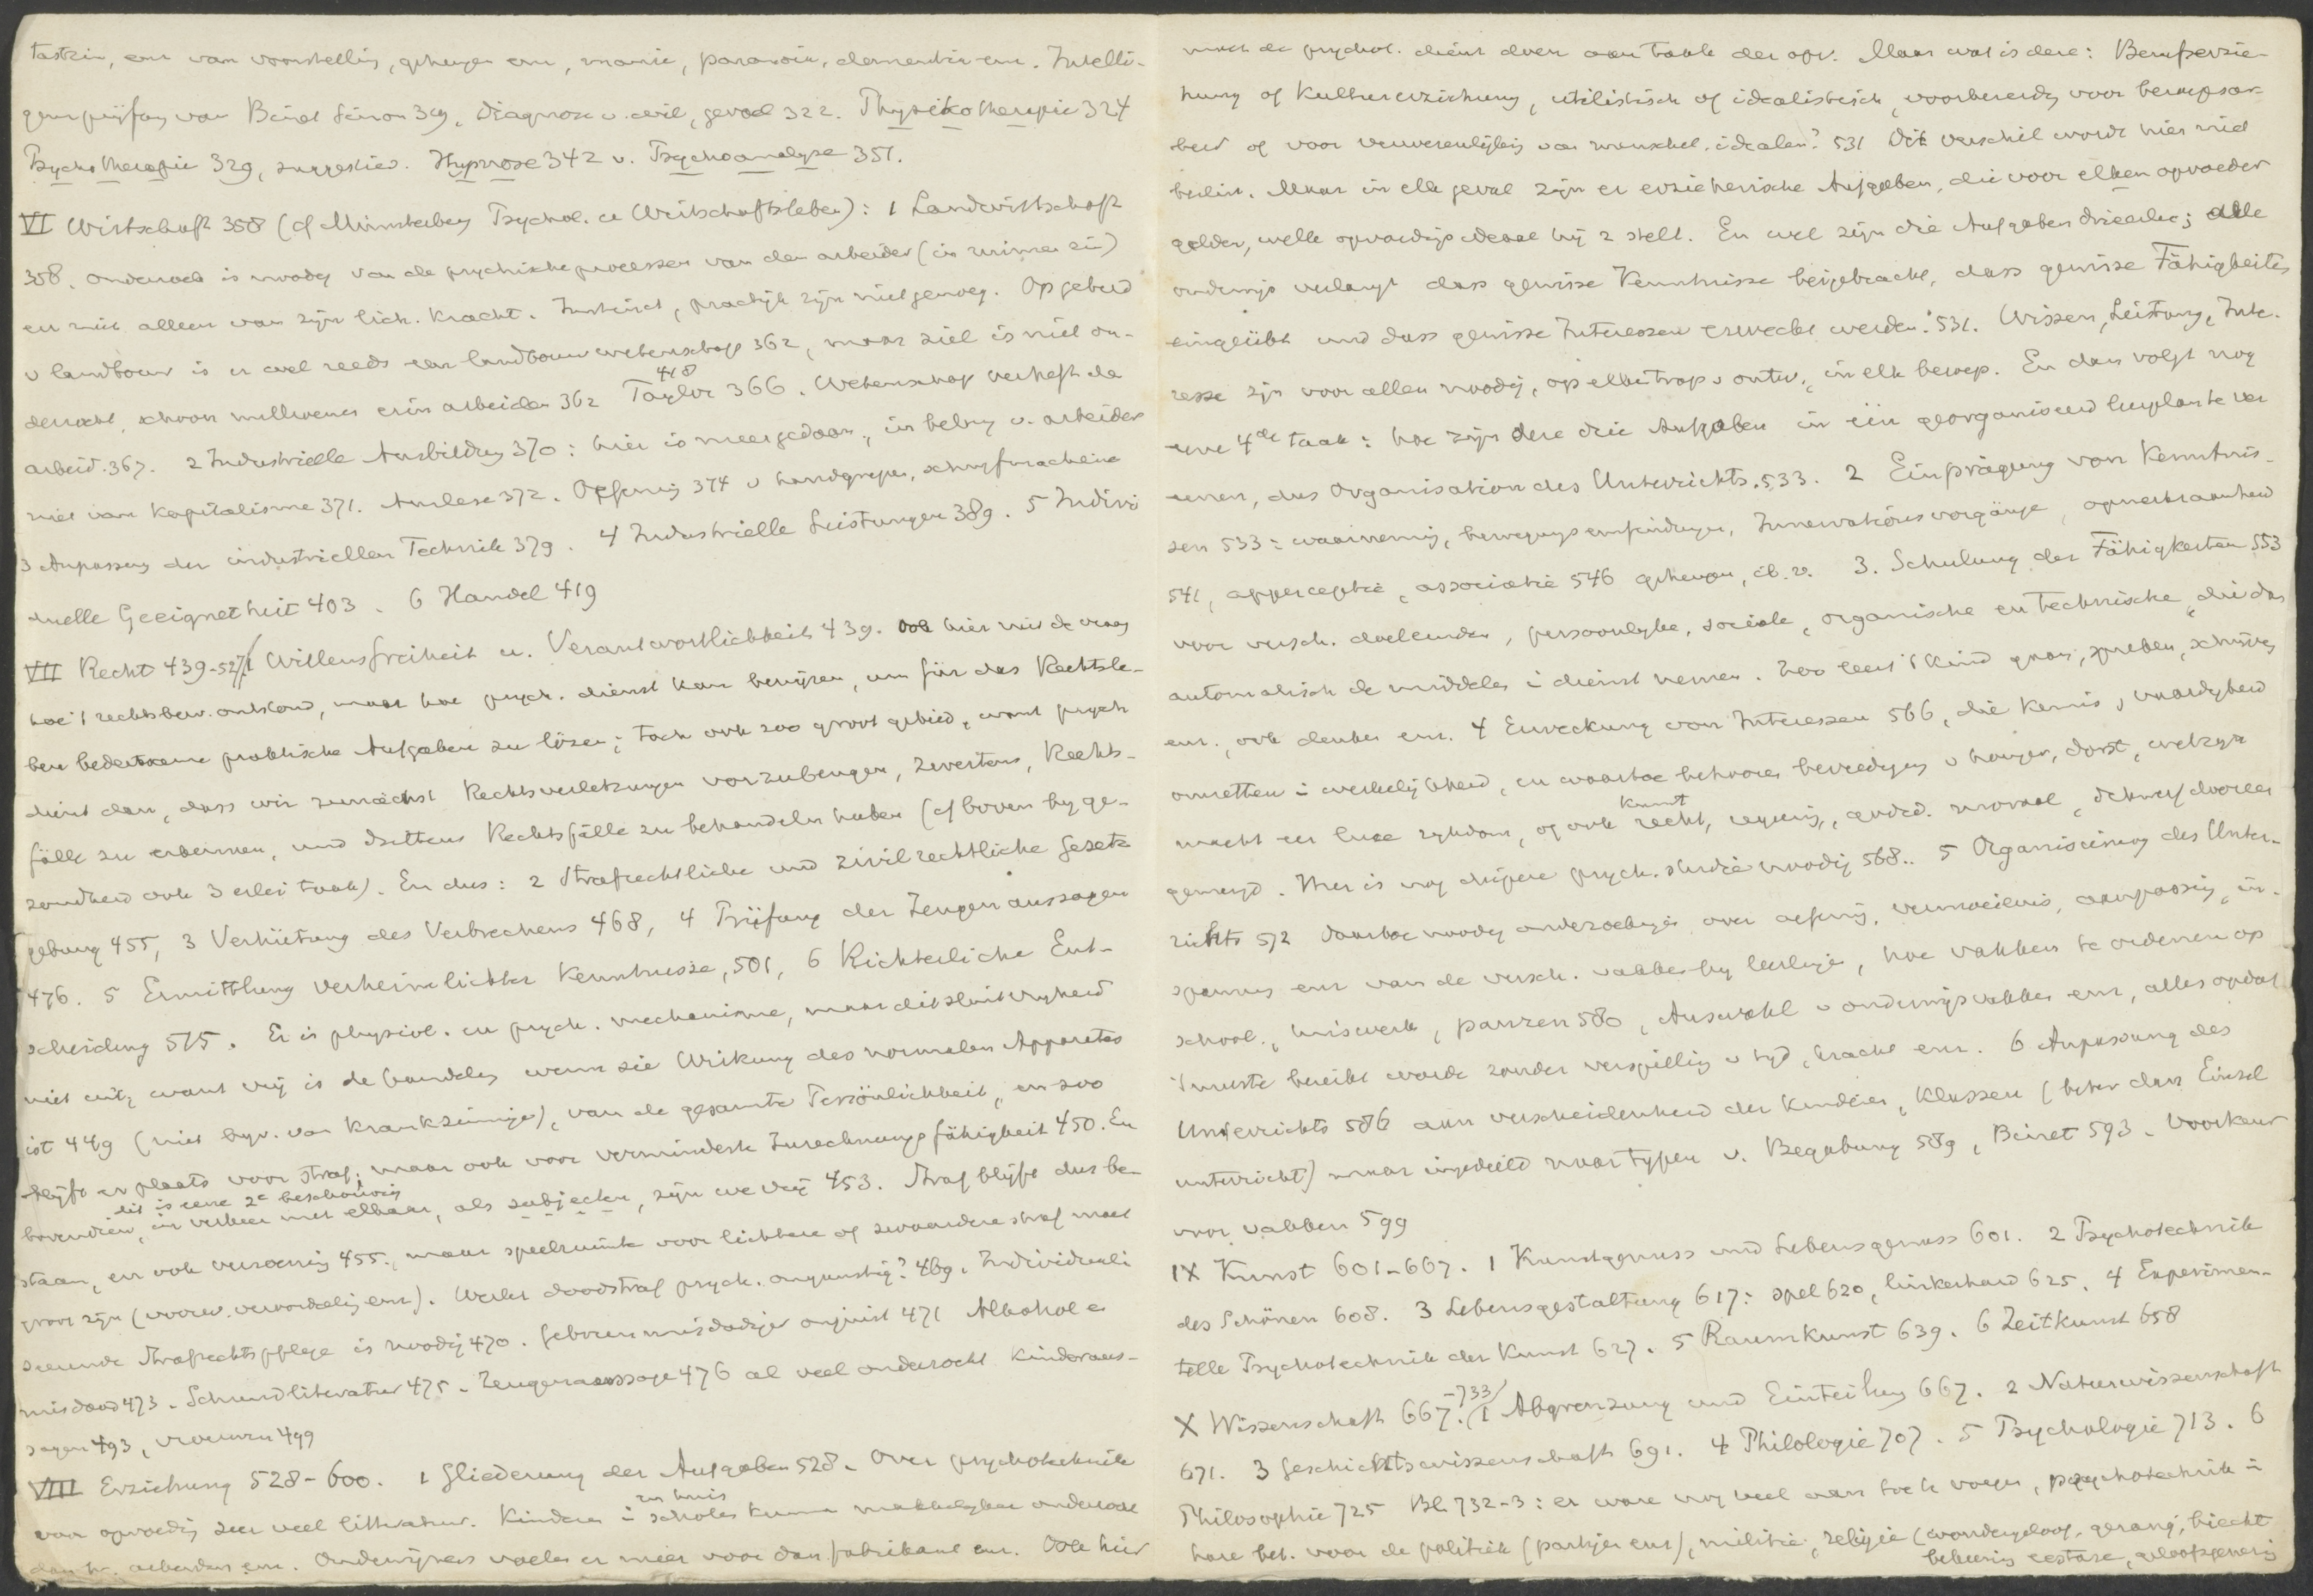 tastzin, enz van voorstelling, geheugen enz, manie, paranoia, dementia enz. Intelli-
genzprüfung van Binet Simon 319, Diagnose v. wil, gevoel 322. Physikotherapie 324
Psychotherapie 329, suggesties. Hypnose 342 v. Psychoanalyse 351.
VI Wirtschaft 358 (cf Münsterberg Psychol. u Wirtschaftsleben): 1 Landwirtschaft
358. onderzoek is noodig van de psychische processen van den arbeider (in ruimen zin)
en niet alleen van zijn lich. kracht. Instinct, practijk zijn niet genoeg. Op gebied
v landbouw is er wel reeds een landbouwwetenschap 362, maar ziel is niet on-
derzocht, schoon millioenen erin arbeiden 362 Taylor 366. 418 Wetenschap verheft de
arbeid. 367. 2 Industrielle Ausbildung 370: hier is meer gedaan, in belang v. arbeider
niet van kapitalisme 371. Auslese 372. Oefening 374 v handgrepen, schrijfmachine
3 Anpassung der industriellen Technik 379. 4 Industrielle Leistungen 389. 5 Indivi
duelle Geeignetheit 403. 6 Handel 419
VII Recht 439-527/1 Willensfreiheit u. Verantwortlichkeit 439. Ook hier niet de vraag
hoe 't rechtsbew. ontstond, maar hoe psych. dienst kan bewijzen, um für das Rechtsle-
ben bedeutsame praktische Aufgaben zu lösen; toch ook zoo groot gebied, want psych
dient dan, dass wir zunächst Rechtsverletzungen vorzubeugen, zweitens, Rechts-
fälle zu erkennen, und drittens Rechtsfälle zu behandeln haben (cf boven by ge-
zondheid ook 3 erlei taak). En dus: 2 Strafrechtliche und zivilrechtliche Gesetz
gebung 455, 3 Verhütung des Verbrechens 468, 4 Prüfung der Zeugenaussagen
476. 5 Ermittlung verheimlichter Kenntnisse, 501, 6 Richterliche Ent-
scheidung 515. Er is physiol. en psych. mechanisme, maar dit sluit vryheid
niet uit, want vrij is de handeling wenn sie Wirkung des normalen Apparates
ist 449 (niet bijv. van krankzinnige), van de gesamte Persönlichkeit, en zoo
blijft er plaats voor straf, maar ook voor verminderte Zurechnungsfähigkeit 450. En
dit is eene 2e beschouwing
bovendien, in verkeer met elkaar, als subjecten, zijn we vrij 453. Straf blijft dus be-
staan, en ook verzoening 455, maar speelruimte voor lichtere of zwaardere straf moet
groot zijn (voorw. veroordeling enz). Werkt doodstraf psych. ongunstig? 469. Individuali
seerende Strafrechtspflege is noodig 470. Geboren misdadiger onjuist 471 Alkohol en
misdaad 473. Schundliteratur 475. Zeugenaussage 476 al veel onderzocht kinderaus-
sagen 493, vrouwen 499
VIII Erziehung 528-600. 1 Gliederung der Aufgaben 528. Over psychotechnik
van opvoeding zeer veel litteratuur. Kinderen i scholen en huis kunnen makkelyker onderzocht
dan bv. arbeiders enz. Onderwijzers voelen er meer voor dan fabrikant enz. Ook hier
moet de psychol. dienst doen aan taak der opv. Maar wat is deze: Berufserzie-
hung of Kulturerziehung, utilistisch of idealistisch, voorbereidg voor beroepsar-
beid of voor verwerkelijking van menschel. idealen? 531 Dit verschil wordt hier niet
beslist. Maar in elk geval zijn er erzieherische Aufgaben, die voor elken opvoeder
gelden, welk opvoedings ideaal hij z stelt. En wel zijn die Aufgaben drieerlei; alle
onderwijs verlangt dass gewisse Kenntnisse beigebracht, dass gewisse Fähigkeiten
eingeübt und dass gewisse Interessen erweckt werden. 531. Wissen, Leistung, Inte-
resse zijn voor allen noodig, op elken trap v ontw., in elk beroep. En dan volgt nog
eene 4de taak: hoe zijn deze drie Aufgaben in één georganiseerd leerplan te ver
eenen, dus Organisation des Unterrichts. 533. 2 Einprägung von Kenntnis-
sen 533: waarneming, bewegingsempfindungen, Innervationsvorgänge, opmerkzaamheid
541, apperceptie, associatie 546 geheugen, ib. v. 3. Schulung der Fähigkeiten 553
voor versch. doeleinden, persoonlyke, sociale, organische en technische, die dan
automatisch de middelen i dienst nemen. Zoo leert 't kind gaan, spreken, schrijven
enz., ook denken enz. 4 Erweckung von Interessen 566, die kennis, vaardigheid
omzetten i werkelijkheid, en waartoe behooren bevrediging v honger, dorst, welzijn
macht eer liefde rijkdom, of ook kunst recht, regeering, godsd. moraal, ichmer doorein
gemengd. Hier is nog diepere psych. studie noodig 568. 5 Organisierung des Unter-
richts 572 daartoe noodig onderzoekingen over oefening, vermoeienis, aanpassing, in-
spanning enz van de versch. vakken by leerlingen, hoe vakken te ordenen op
school, huiswerk, pauzen 580, Auswahl v onderwijsvakken enz, alles opdat
't meeste bereikt worde zonder verspilling v tyd, kracht enz. 6 Anpassung des
Unterrichts 586 aan verscheidenheid der kinderen, Klassen (beter dan Einzel
unterricht) maar ingedeeld naar typen v. Begabung 589, Binet 593. Voorkeur
voor vakken 599
IX Kunst 601-667. 1 Kunstgenuss und Lebensgenuss 601. 2 Psychotechnik
des Schönen 608. 3 Lebensgestaltung 617: spel 620, linkerhand 625. 4 Experimen-
telle Psychotechnik der Kunst 627. 5 Raumkunst 639. 6 Zeitkunst 658
X Wissenschaft 667-733/. 1 Abgrenzung und Einteilung 667. 2 Naturwissenschaft
671. 3 Geschichtswissenschaft 691. 4 Philologie 707. 5 Psychologie 713. 6
Philosophie 725 Bl. 732-3: er ware nog veel aan toe te voegen, psychotechnik i
hare bet. voor de politiek (partijen enz), militie, religie (wondergeloof, gezang, biecht
bekeering extase, geloofsgenezing